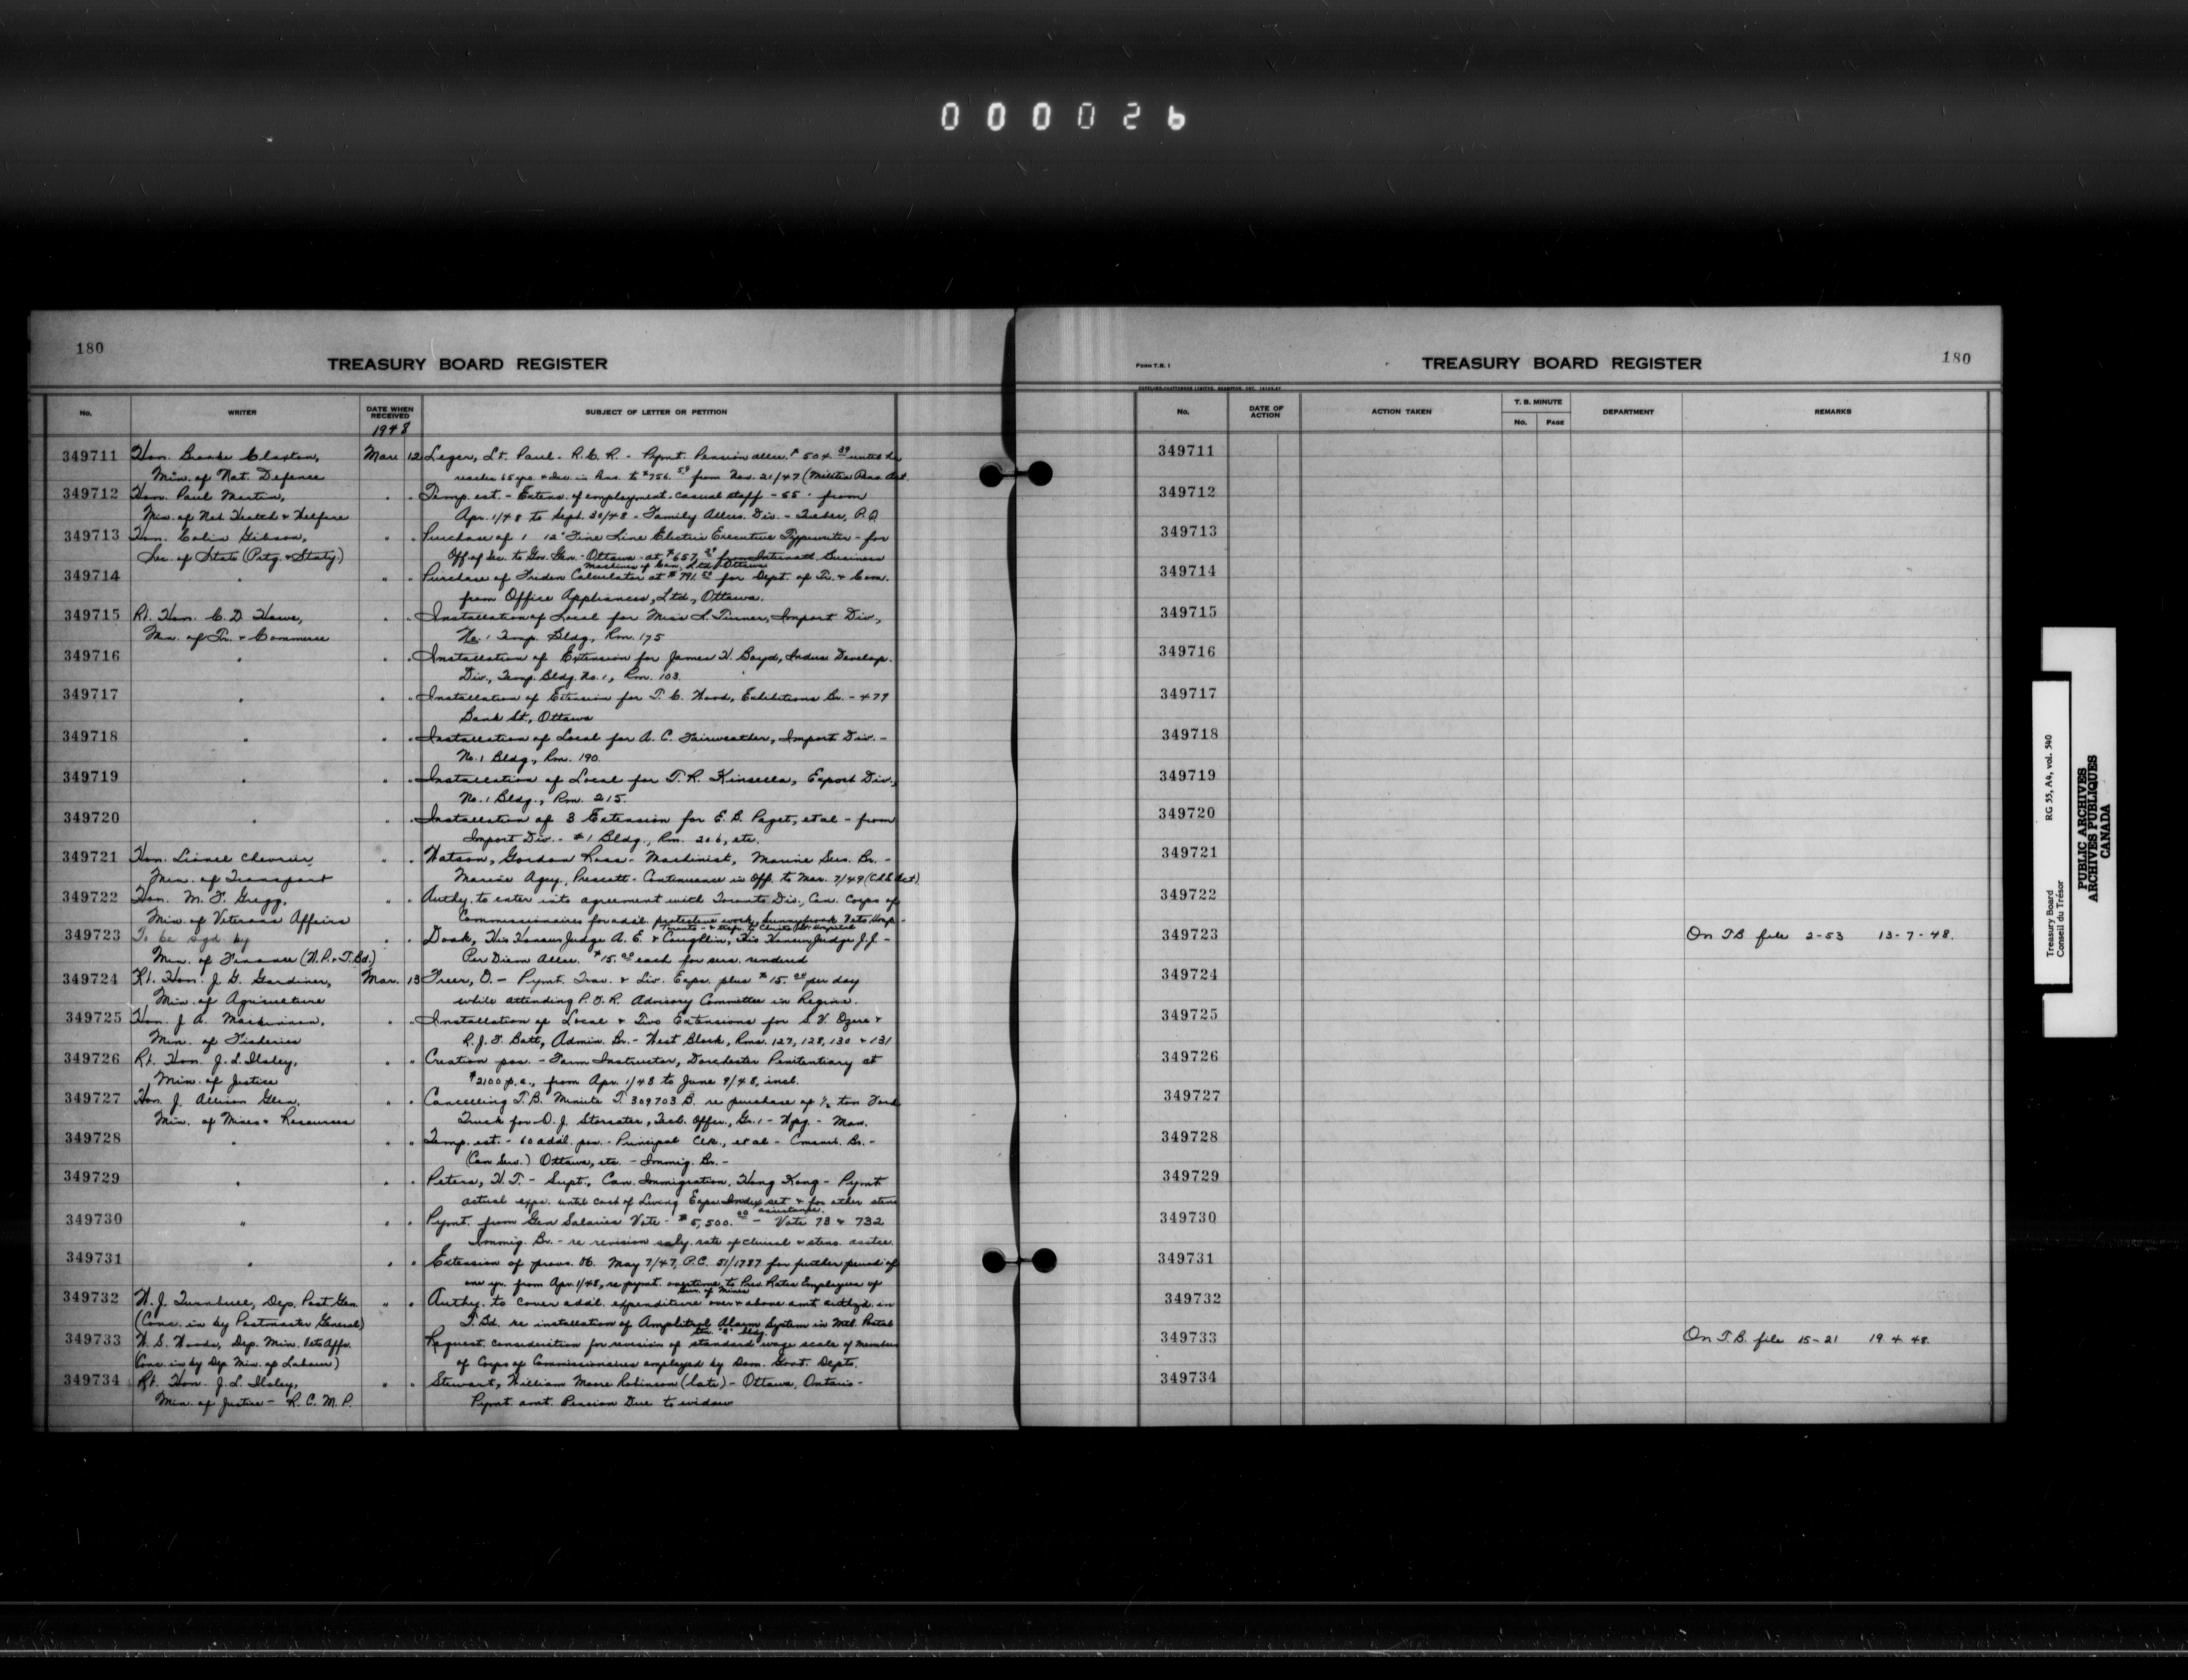 000026
180
TREASURY BOARD REGISTER
No.
WRITER
DATE WHEN RECEIVED
1948
SUBJECT OF LETTER OR PETITION
349711 Hon. Brooke Claxton, Mar. 12 Leger, Lt. Paul - R.C.R. - Pymt. Pension allce. $504.39 until he
Min. of Nat. Defence reaches 65 yrs. + in to $756.59 from Nov. 21/47 (Militia Pens. Act
349712 Hon. Paul Martin, " " Temp. est. - Extens. of employment - casual staff - 55 - from
Min. of Nat. Health & Welfare Apr. 1/48 to Sept. 30/48 - Family Allces. Div. - Quebec, P.Q.
349713 Hon. Colin Gibson, " " Purchase of 1 12" Fine Line Electric Executive Typewriter - for
Sec. of State (Prtg. & Staty) Off. of Sec. to Gov. Gen. - Ottawa - at $657. from Internatl. Business
Machines of Can., Ltd., Ottawa
349714 " " " Purchase of Friden Calculator at $791.50 for Dept. of Tr. & Com.
from Office Appliances, Ltd., Ottawa.
349715 Rt. Hon. C. D. Howe, " " Installation of Local for Miss L. Turner, Import Div.,
Min. of Tr. & Commerce No. 1 Temp. Bldg., Rm. 175
349716 " " " Installation of Extension for James W. Boyd, Indus. Develop.
Div., Temp. Bldg. No. 1, Rm. 103.
349717 " " " Installation of Extension for T. C. Wood, Exhibitions Br. - 479
Bank St., Ottawa
349718 " " " Installation of Local for A. C. Fairweather, Import Div. -
No. 1 Bldg., Rm. 190.
349719 " " " Installation of Local for T. R. Kinsella, Export Div.,
No. 1 Bldg., Rm. 215.
349720 " " " Installation of 3 Extension for E. B. Paget, et al - from
Import Div. - #1 Bldg., Rm. 206, etc.
349721 Hon. Lionel Chevrier, " " Watson, Gordon Ross - Machinist, Marine Serv. Br. -
Min. of Transport Marine Agcy., Prescott - Continuance in Off. to Mar. 7/49 Act)
349722 Hon. M. F. Gregg, " " Authy. to enter into agreement with Toronto Div., Can. Corps of
Min. of Veterans Affairs Commissionaires for addl. protective work, Sunnybrook Vets Hosp. -
Toronto - & Hospital
349723 To be sgd by " " Doak, His Honour Judge A. E. & Coughlin, His Honour Judge J. J. -
Min. of Finance (W.P. & T.Bd.) Per Diem Allce. $15.00 each for serv. rendered
349724 Rt. Hon. J. G. Gardiner, Mar. 13 Freer, O. - Pymt. Trav. & Liv. Exps. plus $15.00 per day
Min. of Agriculture while attending Advisory Committee in Regina.
349725 Hon. J. A. MacKinnon, " " Installation of Local & Two Extensions for S. V. Ozere &
Min. of Fisheries R. J. F. Batt, Admin. Br. - West Block, Rms. 127, 128, 130 & 131
349726 Rt. Hon. J. L. Ilsley, " " Creation pos. - Farm Instructor, Dorchester Penitentiary at
Min. of Justice $2100 p.a., from Apr. 1/48 to June 9/48, incl.
349727 Hon. J. Allison Glen, " " Cancelling T.B. Minute T. 309703 B. re purchase of 1/2 ton Ford
Min. of Mines & Resources Truck for O. J. Storsater, Tech. Offcr., Gr. 1 - Wpg. - Man.
349728 " " " Temp. est. - 60 addl. pos. - Principal Clk., et al - Br. -
(Can Serv.) Ottawa, etc. - Immig. Br. -
349729 " " " Peters, H. T. - Supt., Can. Immigration, Hong Kong - Pymt
actual exps. until Cost of Living Exps. Index set & for other steno
assistance.
349730 " " " Pymt. from Gen Salaries Vote - $5,500.00 - Vote 73 & 732
Immig. Br. - re revision saly. rate of clerical & steno. asstce.
349731 " " " Extension of provs. May 7/47, P.C. 51/1787 for further period of
one yr. from Apr. 1/48, re pymt. overtime to Prev. Rates Employees of
Bur. of Mines
349732 W. J. Turnbull, Dep. Post. Gen. " " Authy. to cover addl. expenditure over & above amt. authzd. in
(Conc. in by Postmaster General) T. Bd. re installation of Amplitrol Alarm System in Mtl. Postal
"a" Bldg.
349733 W. S. Woods, Dep. Min. Vets Affs. Request consideration for revision of standard wage scale of members
(Conc. in by Dep. Min. of Labour) of Corps of Commissionaires employed by Dom. Govt. Depts.
349734 Rt. Hon. J. L. Ilsley, " " Stewart, William Moore Robinson (late) - Ottawa, Ontario -
Min. of Justice - R.C.M.P. Pymt. amt. Pension Due to widow
FORM T.B. 1
TREASURY BOARD REGISTER
180
No.
DATE OF ACTION
ACTION TAKEN
T. B. MINUTE
No.
PAGE
DEPARTMENT
REMARKS
349711
349712
349713
349714
349715
349716
349717
349718
349719
349720
349721
349722
349723 On T.B. file 2-53 13-7-48.
349724
349725
349726
349727
349728
349729
349730
349731
349732
349733 On T.B. file 15-21 19.4.48.
349734
Treasury Board RG 55, A4, vol. 540
Conseil du Trésor
PUBLIC ARCHIVES
ARCHIVES PUBLIQUES
CANADA